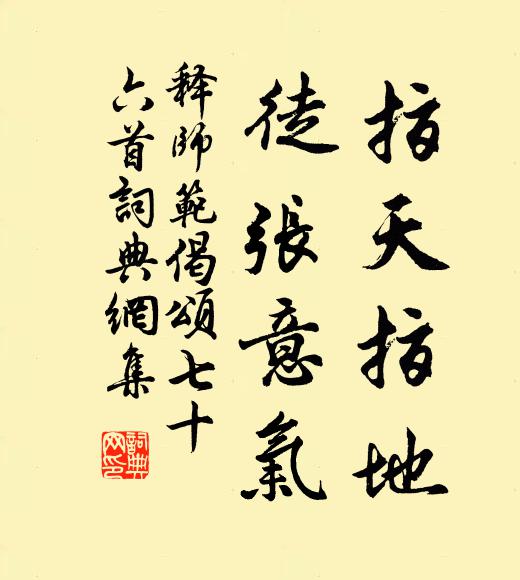 指天指地
徒張意氣
释師範偈頌七十
六首詞典網集
詞典
网印